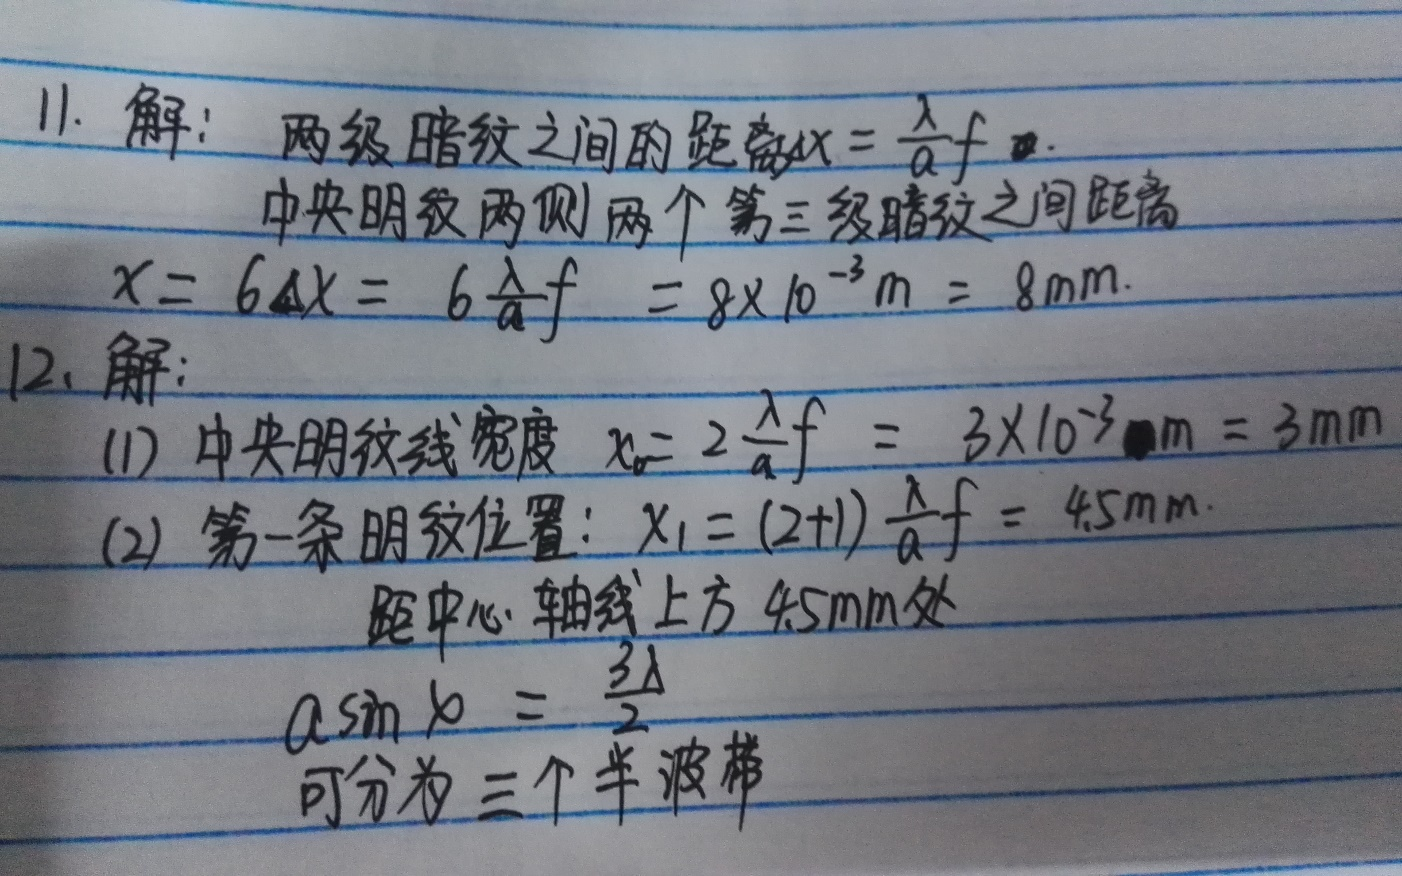 11. 解: 两级暗纹之间的距离Δx = λ/a f .
中央明纹两侧两个第三级暗纹之间距离
x = 6Δx = 6 λ/a f = 8×10⁻³m = 8mm.
12、解:
(1) 中央明纹线宽度 x₀ = 2 λ/a f = 3×10⁻³ m = 3mm
(2) 第一条明纹位置: x₁ = (2+1) λ/a f = 4.5mm.
距中心轴线上方 4.5mm处
a sin = 3λ/2
可分为三个半波带